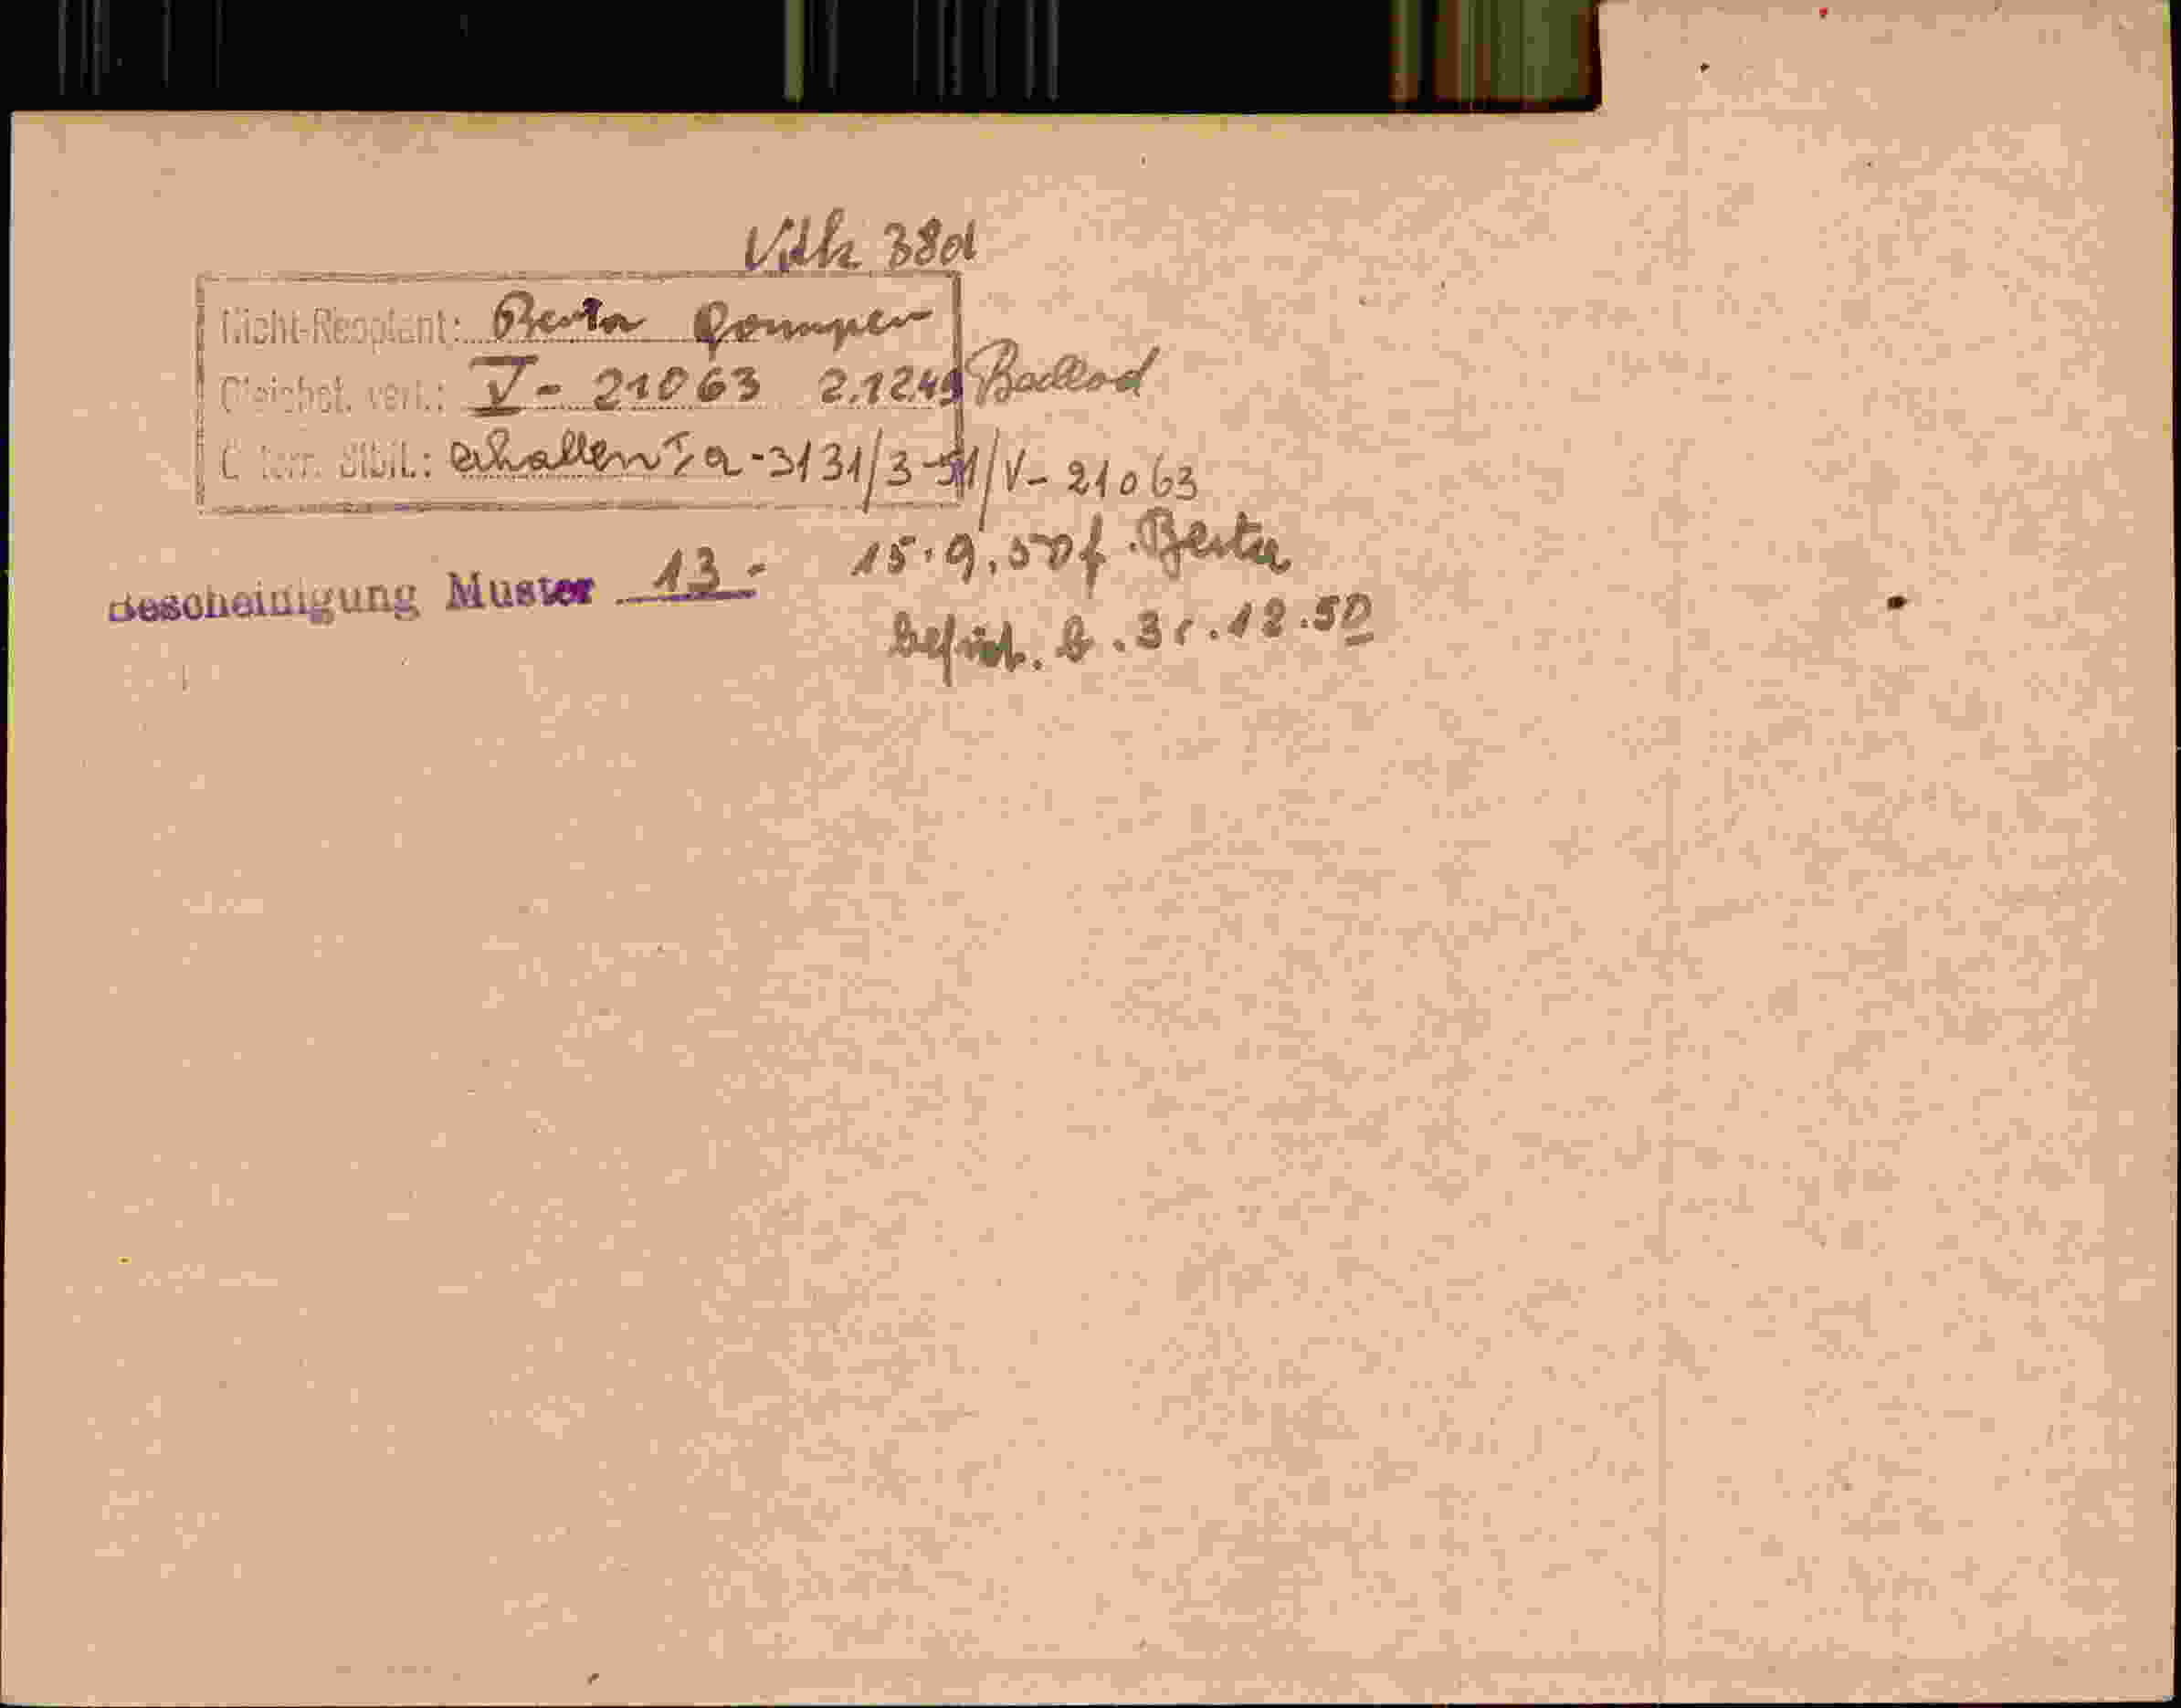 38d
Nicht-Reoptant: Berta
Gleichst. verl.: V - 21063 2.12.49
Österr. Stbü.: erhalten Ia-3131/3-51/V-21063
Bescheinigung Muster 13- 15.9.50 f. Berta
befrist. b. 31.12.50